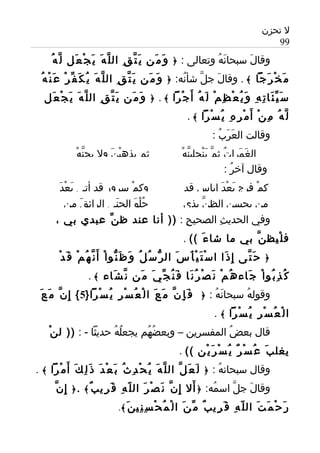 لا تحزن
99
وقالَ سبحانَهُ وتعالى : ﴿ وَمَن يَتَّقِ اللَّهَ يَجْعَل لَّهُ
مَخْرَجًا ﴾ . وقالَ جلَّ شأنُه: ﴿ وَمَن يَتَّقِ اللَّهَ يُكَفِّرْ عَنْهُ
سَيِّئَاتِهِ وَيُعْظِمْ لَهُ أَجْرًا ﴾ . ﴿ وَمَن يَتَّقِ اللَّهَ يَجْعَل
لَّهُ مِنْ أَمْرِهِ يُسْرًا ﴾ .
وقالت العَرَبُ :
الغَمَراتُ ثمَّ يَنْجلِينَّهْ ثم يذهبْنَ ولا يجنَّهْ
وقال آخرُ :
كمْ فرجٍ بَعْدَ إياسٍ قد وكمْ سرورٍ قد أتى بَعْدَ
من يحسنِ الظنَّ بذي حُلْوَ الجنَى الرائقَ من
وفي الحديثِ الصحيحِ : (( أنا عند ظنِّ عبدي بي ،
فلْيظنَّ بي ما شاءَ )) .
﴿ حَتَّى إِذَا اسْتَيْأَسَ الرُّسُلُ وَظَنُّواْ أَنَّهُمْ قَدْ
كُذِبُواْ جَاءهُمْ نَصْرُنَا فَنُجِّيَ مَن نَّشَاء ﴾ .
وقولهُ سبحانَهُ : ﴿ فَإِنَّ مَعَ الْعُسْرِ يُسْرًا{5} إِنَّ مَعَ
الْعُسْرِ يُسْرًا ﴾ .
قال بعضُ المفسرين – وبعضُهُم يجعلُهُ حديثًا - : (( لنْ
يغلبَ عُسْرٌ يُسْرَيْنِ )) .
وقال سبحانهُ : ﴿ لَعَلَّ اللَّهَ يُحْدِثُ بَعْدَ ذَلِكَ أَمْرًا ﴾ .
وقالَ جلَّ اسمُه: ﴿أَلا إِنَّ نَصْرَ اللّهِ قَرِيبٌ﴾ .﴿ إِنَّ
رَحْمَتَ اللّهِ قَرِيبٌ مِّنَ الْمُحْسِنِينَ﴾.